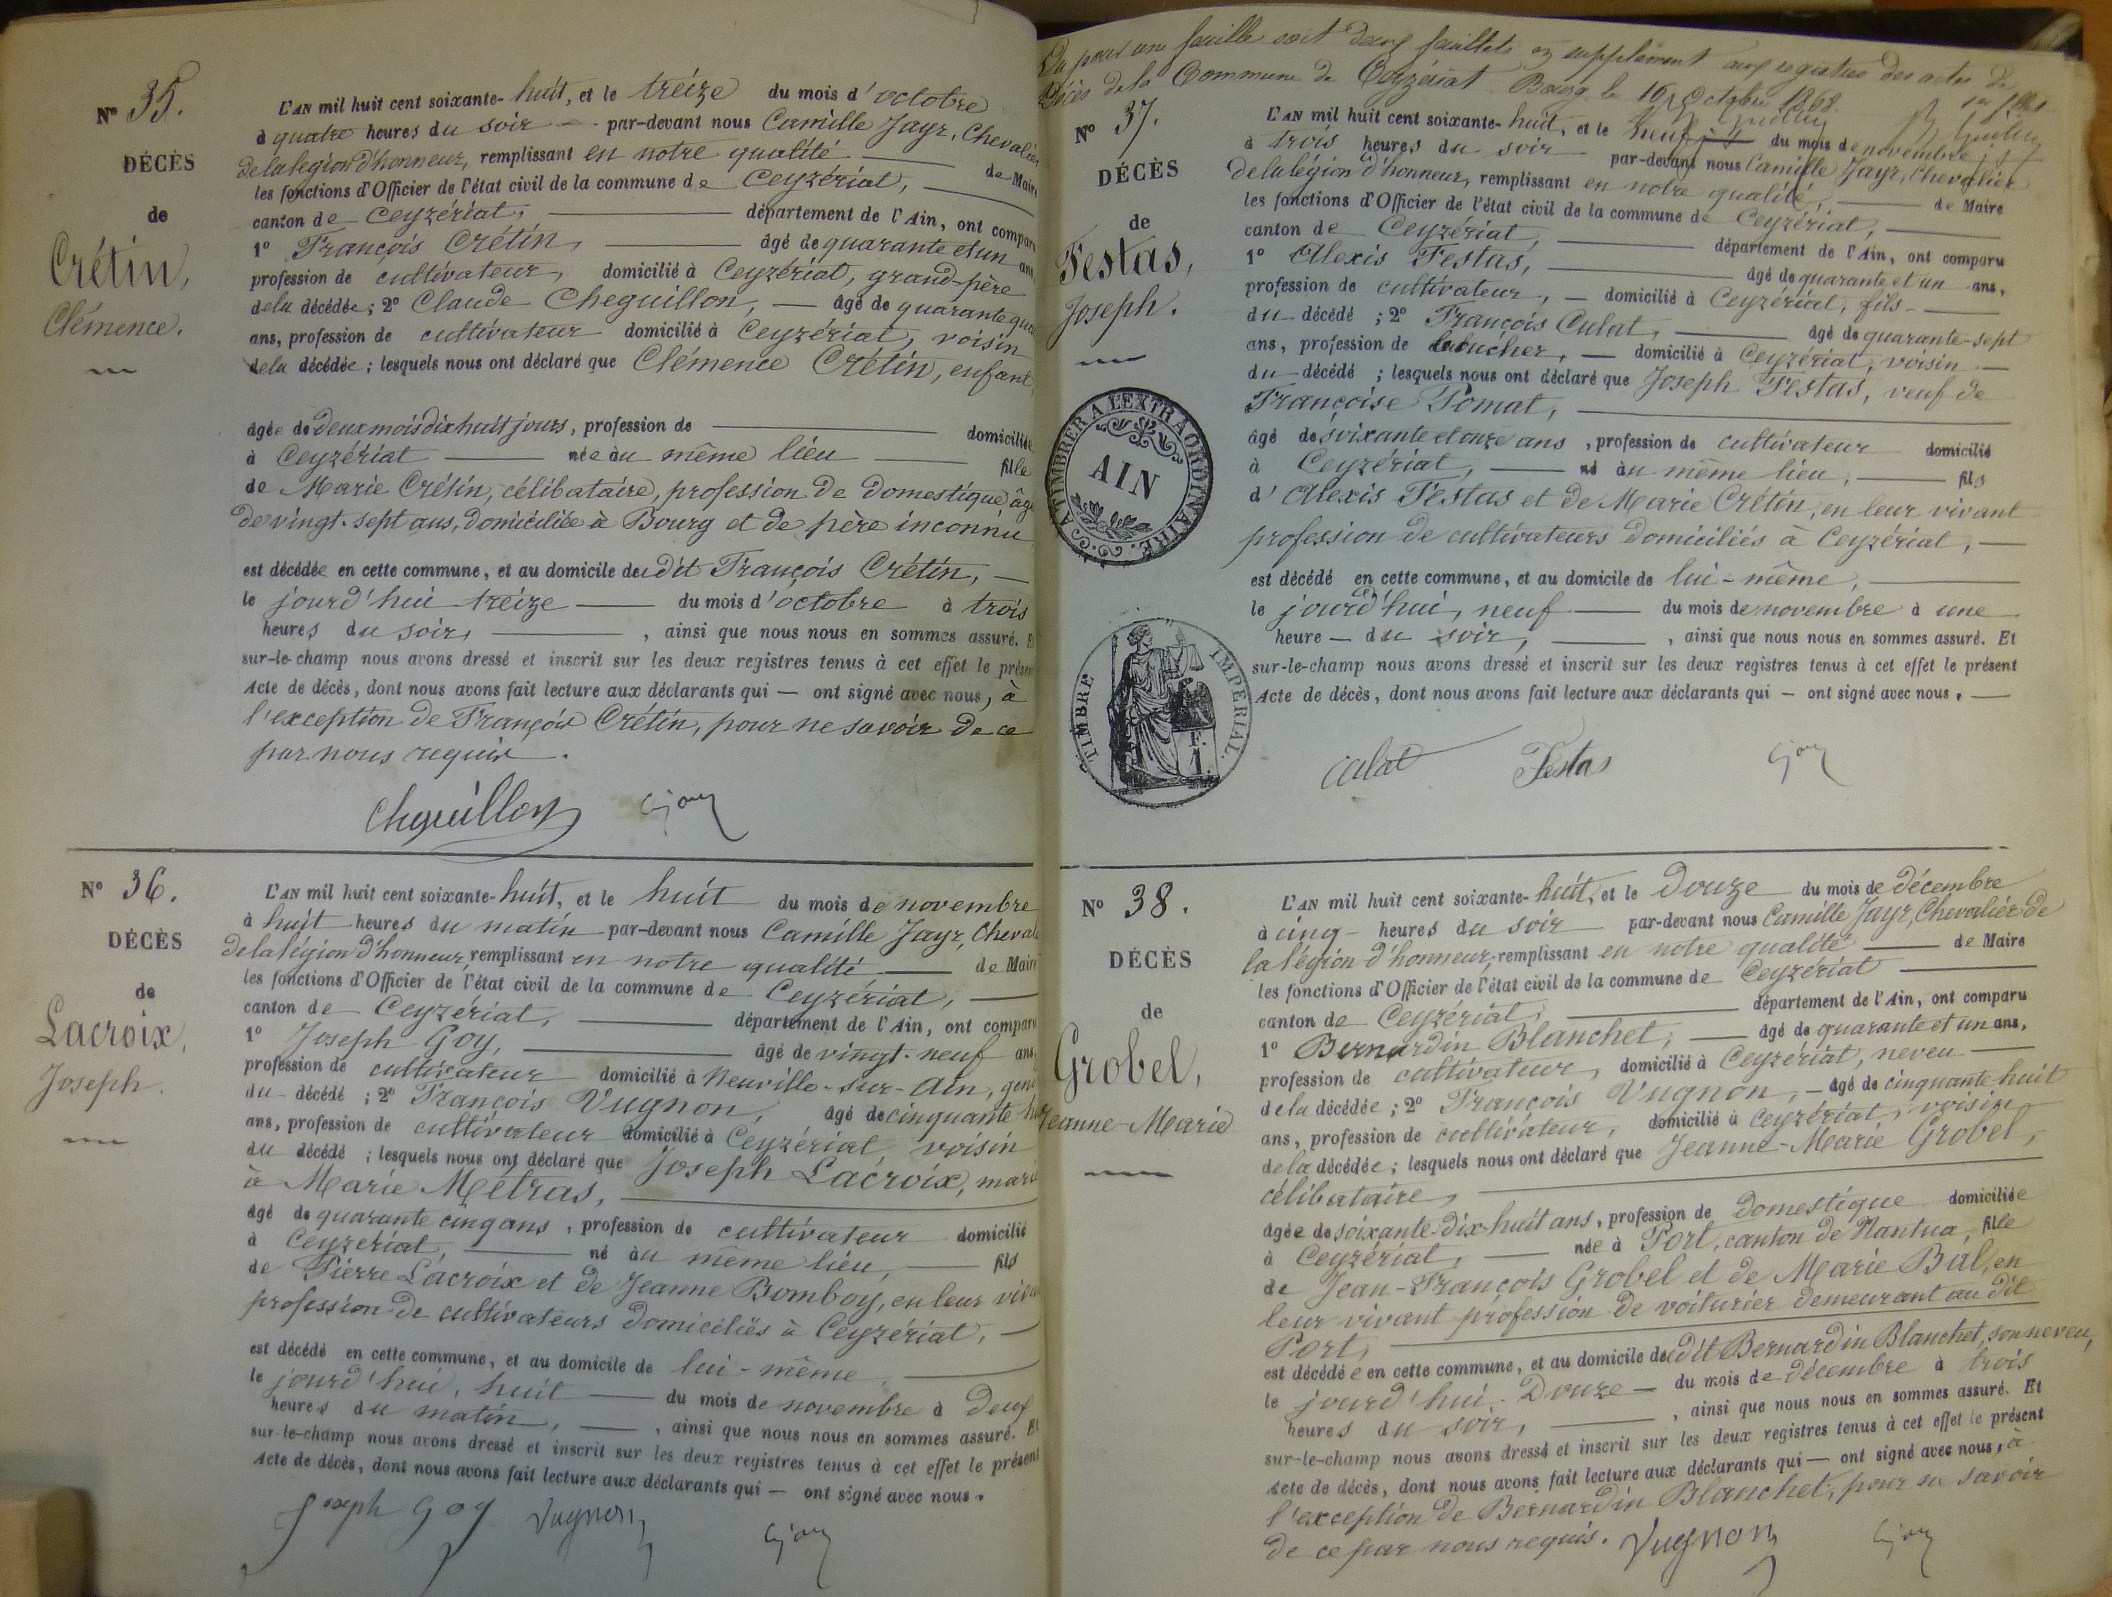 N° 35.
DÉCÈS
de
Crétin,
Clémence.
L'AN mil huit cent soixante-huit, et le treize du mois d'octobre
à quatre heures du soir par-devant nous Camille Jayr, Chevalier
de la légion d'honneur, remplissant en notre qualité de Maire
les fonctions d'Officier de l'état civil de la commune de Ceyzériat,
canton de Ceyzériat, département de l'Ain, ont comparu
1° François Crétin, âgé de quarante et un ans
profession de cultivateur, domicilié à Ceyzériat, grand-père
de la décédée ; 2° Claude Cheguillon, âgé de quarante
ans, profession de cultivateur domicilié à Ceyzériat, voisin
de la décédée ; lesquels nous ont déclaré que Clémence Crétin, enfant
âgée de deux mois dix huit jours, profession de domiciliée
à Ceyzériat née au même lieu fille
de Marie Crétin, célibataire, profession de domestique, âgé
de vingt-sept ans, domiciliée à Bourg et de père inconnu
est décédée en cette commune, et au domicile du dit François Crétin,
le jourd'hui treize du mois d'octobre à trois
heures du soir, , ainsi que nous nous en sommes assuré. Et
sur-le-champ nous avons dressé et inscrit sur les deux registres tenus à cet effet le présent
Acte de décès, dont nous avons fait lecture aux déclarants qui — ont signé avec nous, à
l'exception de François Crétin, pour ne savoir de ce
par nous requis.
Cheguillon CJayr
N° 36.
DÉCÈS
de
Lacroix,
Joseph.
L'AN mil huit cent soixante-huit, et le huit du mois de novembre
à huit heures du matin par-devant nous Camille Jayr, Cheval
de la légion d'honneur, remplissant en notre qualité de Maire
les fonctions d'Officier de l'état civil de la commune de Ceyzériat,
canton de Ceyzériat, département de l'Ain, ont comparu
1° Joseph Goy, âgé de vingt-neuf ans,
profession de cultivateur domicilié à Neuville-sur-Ain, gend
du décédé ; 2° François Vugnon, âgé de cinquante hu
ans, profession de cultivateur domicilié à Ceyzériat, voisin
du décédé ; lesquels nous ont déclaré que Joseph Lacroix, mari
à Marie Métras,
âgé de quarante cinq ans, profession de cultivateur domicilié
à Ceyzériat, né au même lieu, fils
de Pierre Lacroix et de Jeanne Bomboy, en leur viva
profession de cultivateurs domiciliés à Ceyzériat,
est décédé en cette commune, et au domicile de lui-même,
le jourd'hui, huit du mois de novembre à deux
heures du matin, , ainsi que nous nous en sommes assuré. Et
sur-le-champ nous avons dressé et inscrit sur les deux registres tenus à cet effet le présent
Acte de décès, dont nous avons fait lecture aux déclarants qui — ont signé avec nous.
Joseph Goy Vugnon CJayr
Vu pour une feuille soit deux feuillets en supplément aux registres des actes de
Décès de la Commune de Ceyzériat Bourg le 16 Octobre 1868.
N° 37.
DÉCÈS
de
Festas,
Joseph.
A TIMBRER A L'EXTRAORDINAIRE.
AIN
TIMBRE IMPERIAL.
F.
1.
L'AN mil huit cent soixante-huit, et le neuf du mois de novembre
à trois heures du soir par-devant nous Camille Jayr, Chevalier
de la légion d'honneur, remplissant en notre qualité, de Maire
les fonctions d'Officier de l'état civil de la commune de Ceyzériat,
canton de Ceyzériat, département de l'Ain, ont comparu
1° Alexis Festas, âgé de quarante et un ans,
profession de cultivateur, — domicilié à Ceyzériat, fils
du décédé ; 2° François Culat, âgé de quarante-sept
ans, profession de boucher, — domicilié à Ceyzériat, voisin
du décédé ; lesquels nous ont déclaré que Joseph Festas, veuf de
Françoise Pomat,
âgé de soixante et onze ans, profession de cultivateur domicilié
à Ceyzériat, né au même lieu, fils
d'Alexis Festas et de Marie Crétin, en leur vivant
profession de cultivateurs domiciliés à Ceyzériat,
est décédé en cette commune, et au domicile de lui-même,
le jourd'hui, neuf du mois de novembre à une
heure — du soir, , ainsi que nous nous en sommes assuré. Et
sur-le-champ nous avons dressé et inscrit sur les deux registres tenus à cet effet le présent
Acte de décès, dont nous avons fait lecture aux déclarants qui — ont signé avec nous.
Culat Festas CJayr
N° 38.
DÉCÈS
de
Grobel,
Jeanne-Marie
L'AN mil huit cent soixante-huit, et le Douze du mois de décembre
à cinq heures du soir par-devant nous Camille Jayr, Chevalier de
la légion d'honneur, remplissant en notre qualité de Maire
les fonctions d'Officier de l'état civil de la commune de Ceyzériat
canton de Ceyzériat, département de l'Ain, ont comparu
1° Bernardin Blanchet, âgé de quarante et un ans,
profession de cultivateur, domicilié à Ceyzériat, neveu
de la décédée ; 2° François Vugnon, — âgé de cinquante huit
ans, profession de cultivateur, domicilié à Ceyzériat, voisin
de la décédée ; lesquels nous ont déclaré que Jeanne-Marie Grobel,
célibataire,
âgée de soixante-dix-huit ans, profession de Domestique domiciliée
à Ceyzériat, née à Port, canton de Nantua, fille
de Jean-François Grobel et de Marie Bal, en
leur vivant profession de voiturier demeurant au dit
Port,
est décédée en cette commune, et au domicile du dit Bernardin Blanchet, son neveu,
le jourd'hui, Douze — du mois de décembre à trois
heures du soir, , ainsi que nous nous en sommes assuré. Et
sur-le-champ nous avons dressé et inscrit sur les deux registres tenus à cet effet le présent
Acte de décès, dont nous avons fait lecture aux déclarants qui — ont signé avec nous, à
l'exception de Bernardin Blanchet, pour ne savoir
de ce par nous requis. Vugnon CJayr